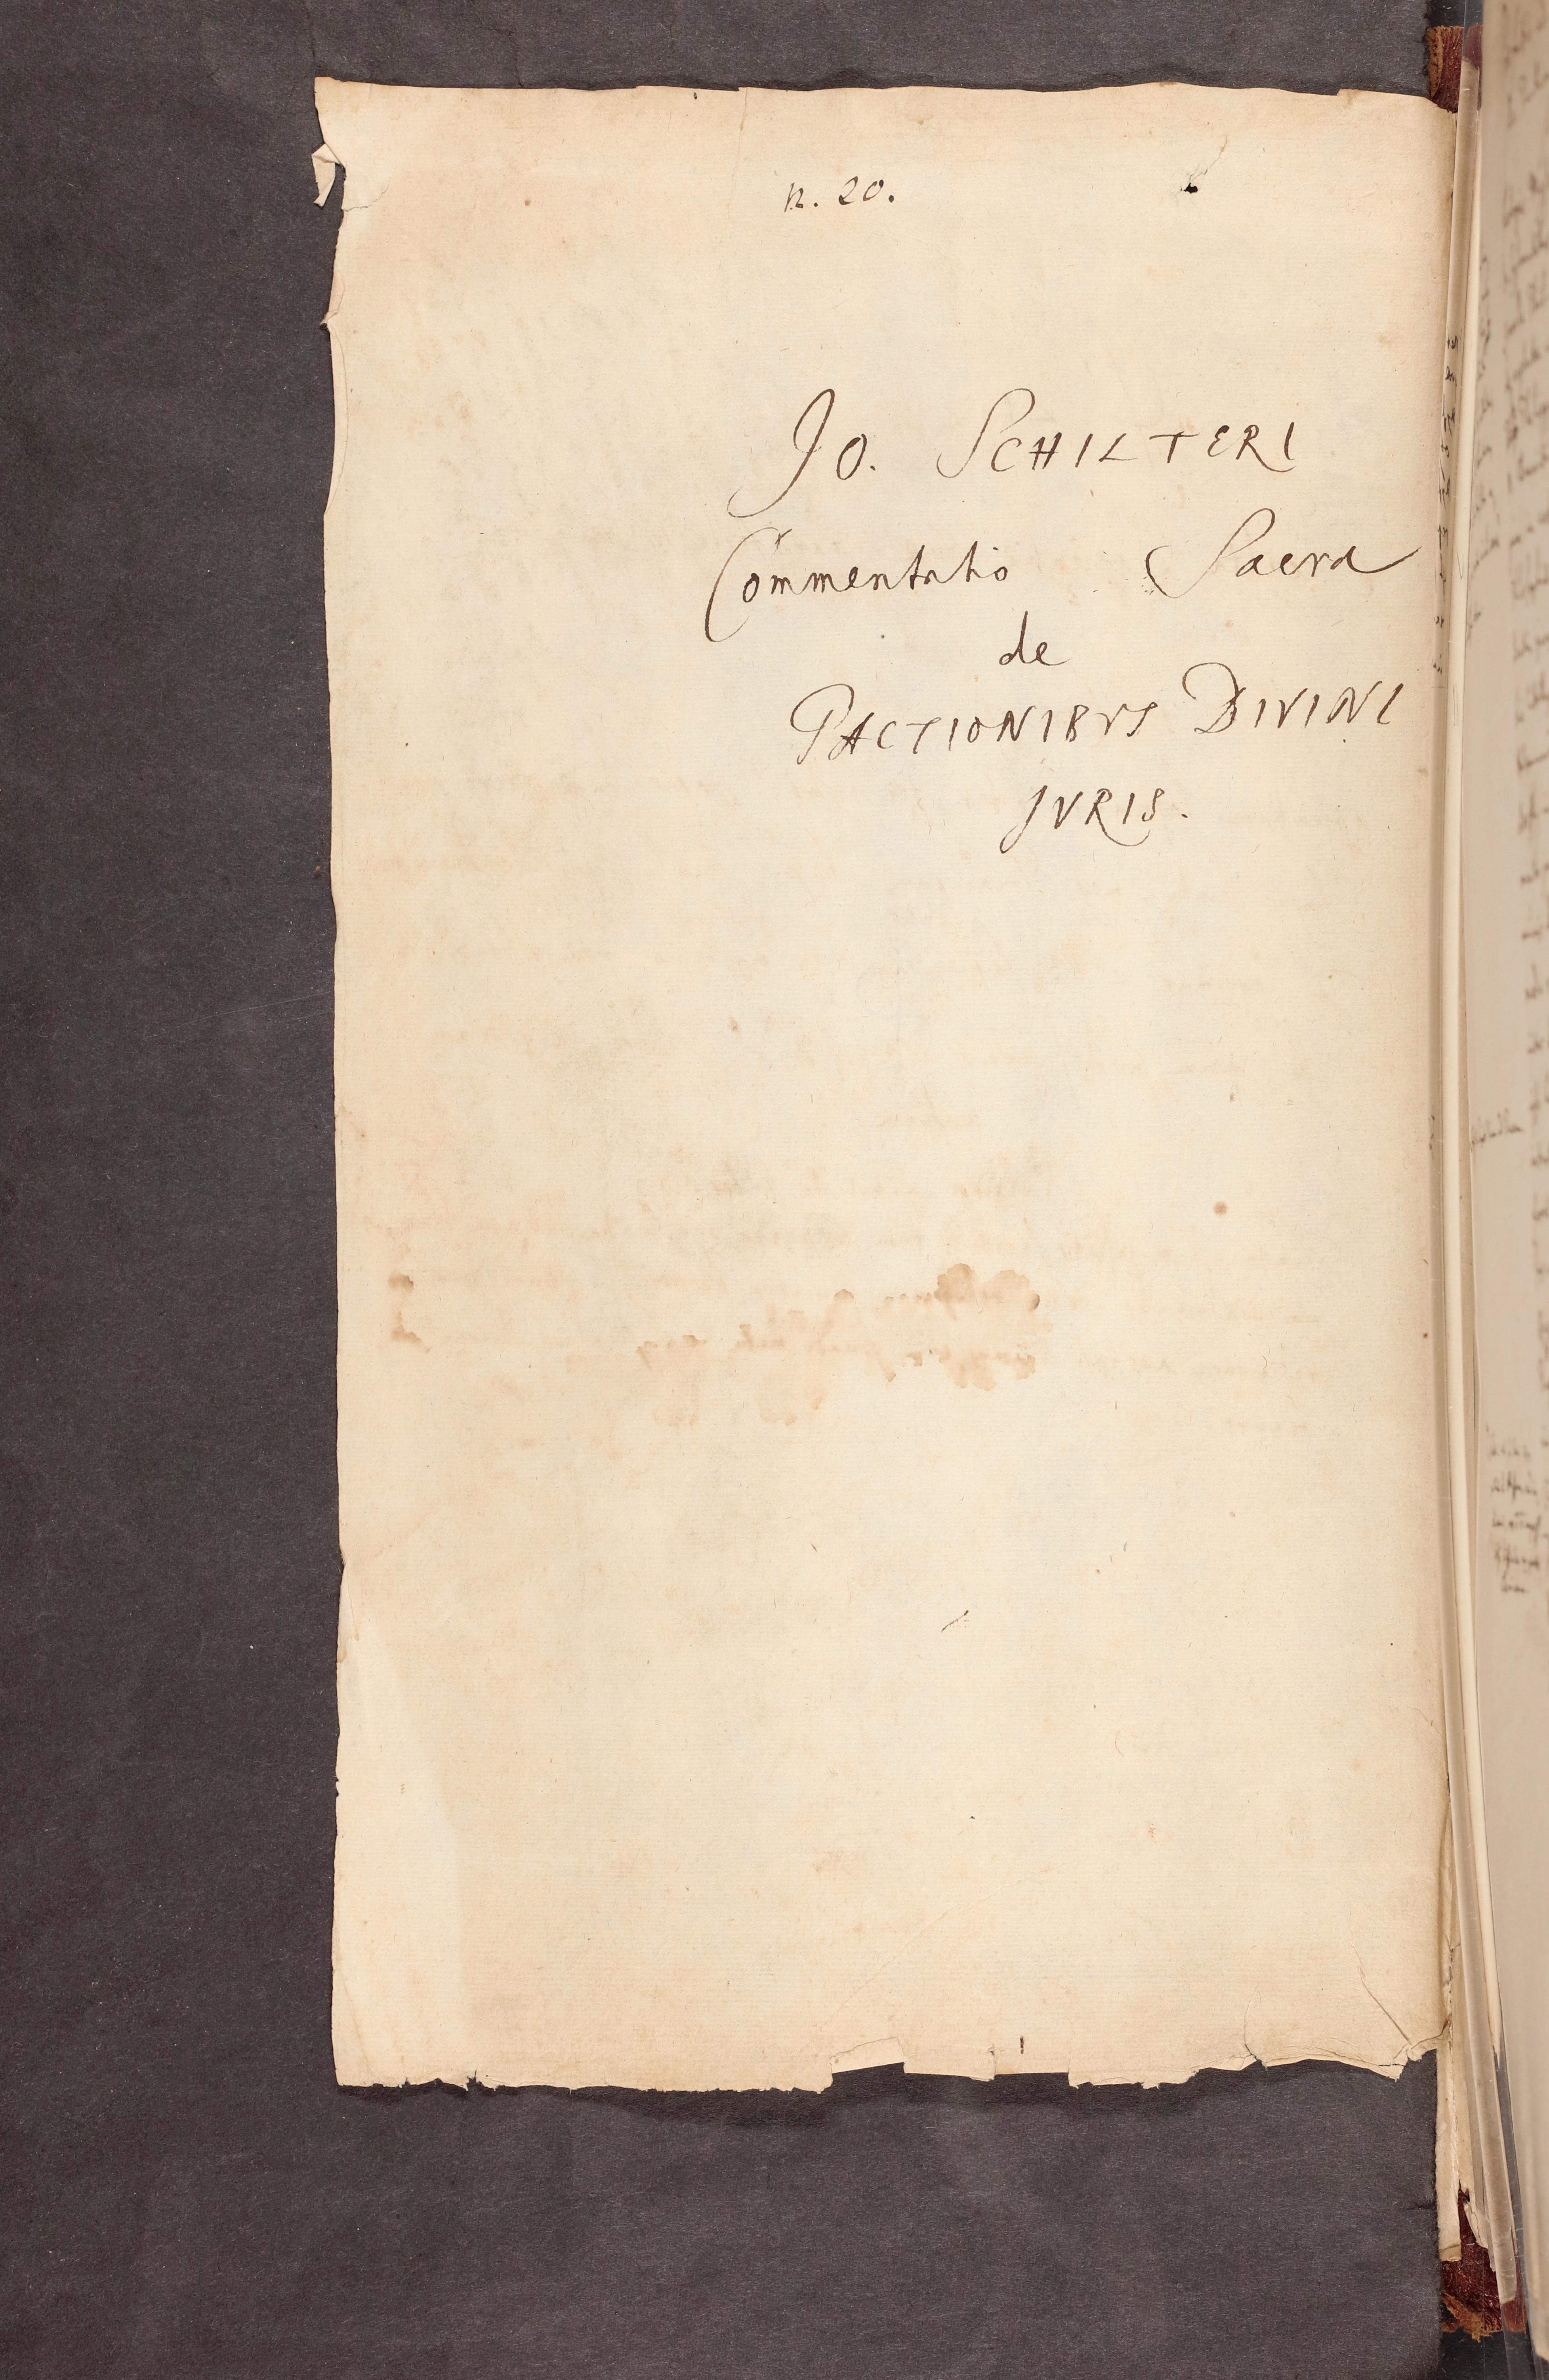 n. 20.
JO. SCHILTERI
Commentatio Sacra
de
PACTIONIBVS DIVINI
JVRIS.